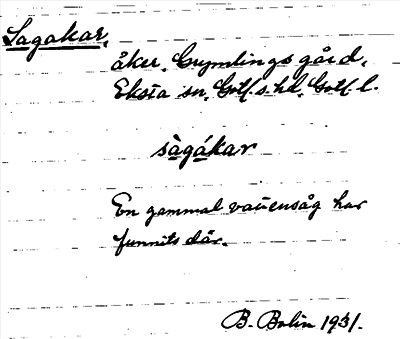 Sagakar,
åker, Grymlings gård,
Eksta sn, Gotl. s. hd, Gotl. l.
sàgákar
En gammal vattensåg har
funnits där.
B. Bolin 1931.